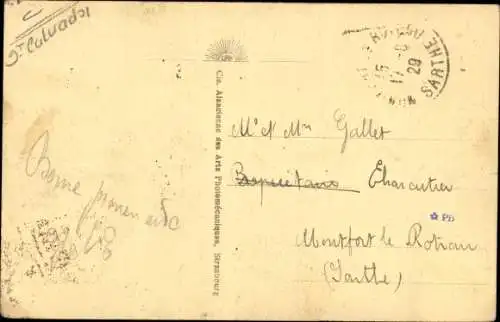 St Calvados
SARTHE
29
Cie. Alsacienne des Arts Photomécaniques, Strasbourg
Mr et Mme Gallet
Propriétaire Charcutier
PB
Montfort le Rotrou
(Sarthe)
Bonne promenade